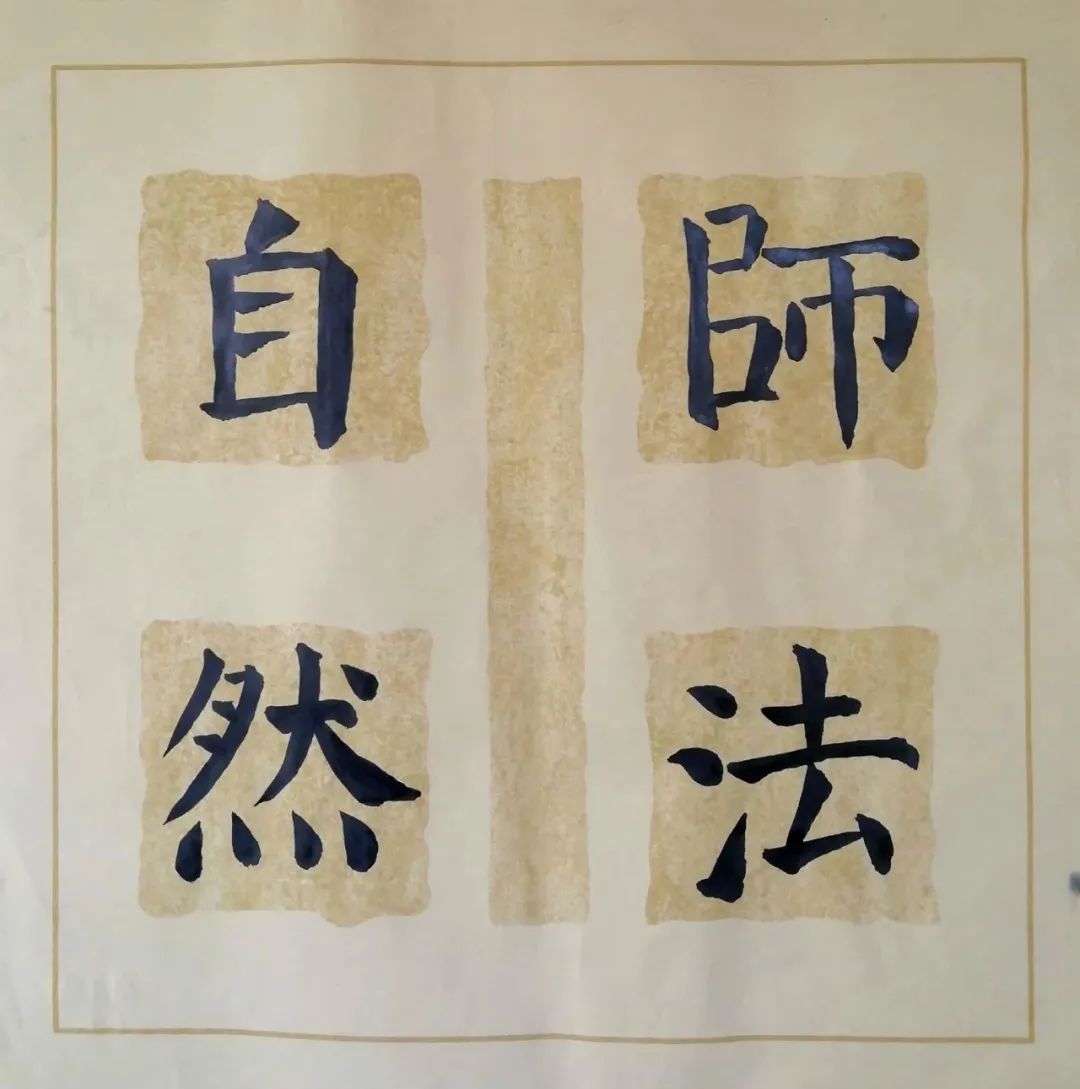 師法
自然